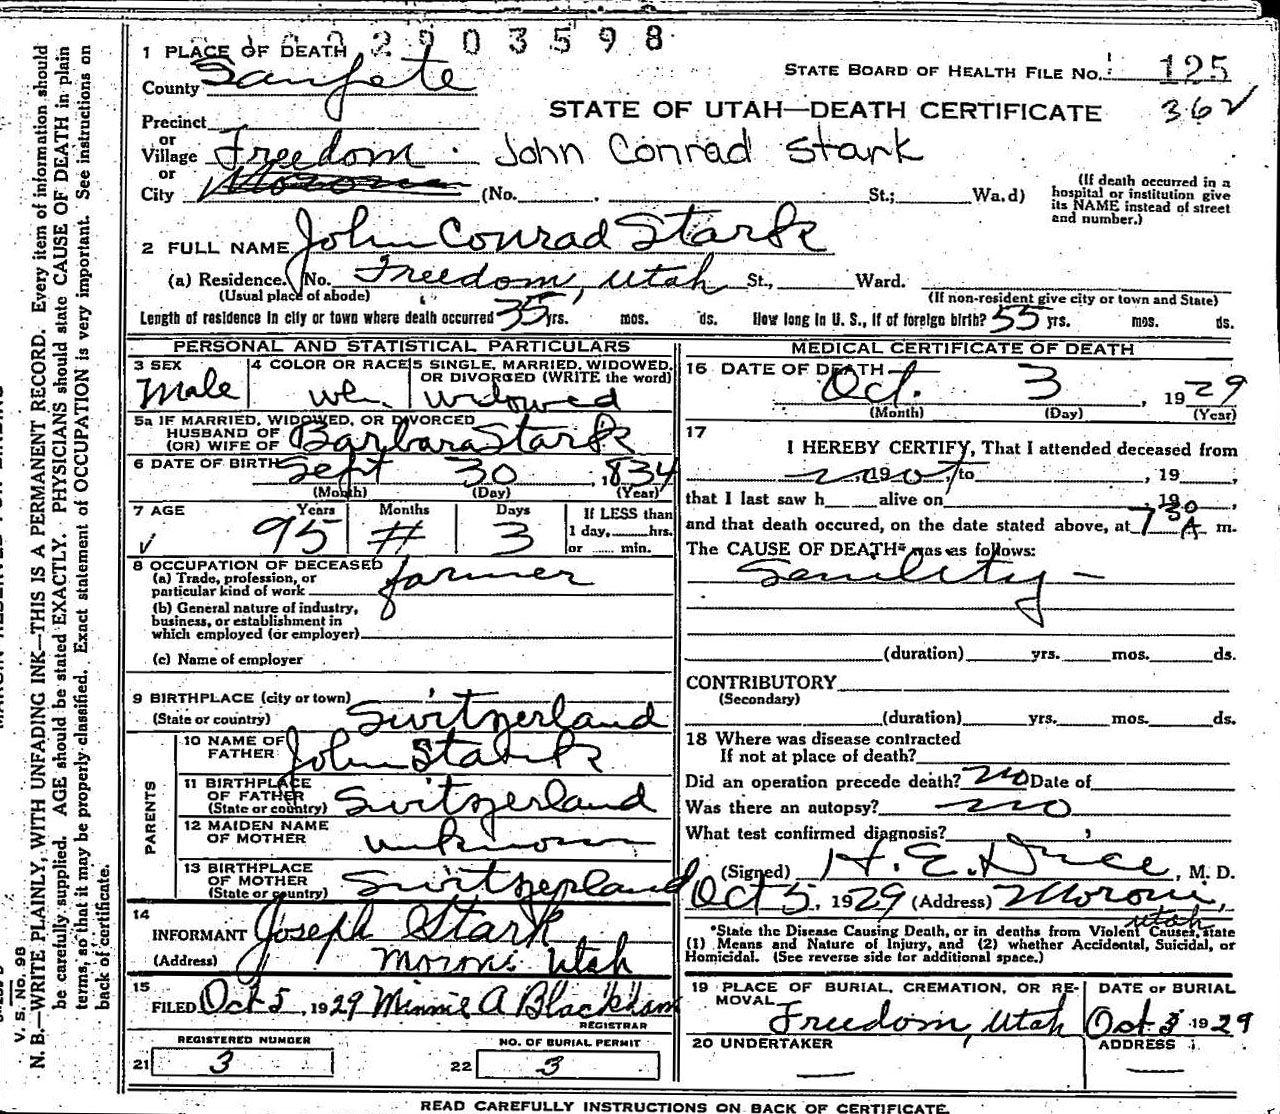 2903598
1 PLACE OF DEATH
County Sanpete
STATE BOARD OF HEALTH FILE No. 125
STATE OF UTAH—DEATH CERTIFICATE 362
Precinct
or
Village Freedom John Conrad Stark
or
City Moroni (No. St.; Wa.d)
(If death occurred in a
hospital or institution give
its NAME instead of street
and number.)
2 FULL NAME John Conrad Stark
(a) Residence. No. Freedom, Utah St., Ward.
(Usual place of abode) (If non-resident give city or town and State)
Length of residence in city or town where death occurred 35 yrs. mos. ds. How long in U. S., if of foreign birth? 55 yrs. mos. ds.
PERSONAL AND STATISTICAL PARTICULARS
3 SEX
Male
4 COLOR OR RACE
wh.
5 SINGLE, MARRIED, WIDOWED,
OR DIVORCED (WRITE the word)
widowed
5a IF MARRIED, WIDOWED, OR DIVORCED
HUSBAND OF
(OR) WIFE OF Barbara Stark
6 DATE OF BIRTH Sept 30, 1834
(Month) (Day) (Year)
7 AGE Years Months Days If LESS than
95 # 3 1 day, hrs.
or min.
8 OCCUPATION OF DECEASED
(a) Trade, profession, or
particular kind of work farmer
(b) General nature of industry,
business, or establishment in
which employed (or employer)
(c) Name of employer
9 BIRTHPLACE (city or town)
(State or country) Switzerland
PARENTS
10 NAME OF
FATHER John Stark
11 BIRTHPLACE
OF FATHER
(State or country) Switzerland
12 MAIDEN NAME
OF MOTHER unknown
13 BIRTHPLACE
OF MOTHER
(State or country) Switzerland
14
INFORMANT Joseph Stark
(Address) Moroni Utah
15
FILED Oct 5, 1929 Minnie A Blackham
REGISTRAR
REGISTERED NUMBER
21 3
NO. OF BURIAL PERMIT
22 3
MEDICAL CERTIFICATE OF DEATH
16 DATE OF DEATH
Oct. 3, 1929
(Month) (Day) (Year)
17
I HEREBY CERTIFY, That I attended deceased from
not, 19 , to , 19 ,
that I last saw h alive on , 19 ,
and that death occured, on the date stated above, at 7 30 A m.
The CAUSE OF DEATH* was as follows:
Senility -
(duration) yrs. mos. ds.
CONTRIBUTORY
(Secondary)
(duration) yrs. mos. ds.
18 Where was disease contracted
If not at place of death?
Did an operation precede death? no Date of
Was there an autopsy? no
What test confirmed diagnosis?
(Signed) H. E. , M. D.
Oct 5, 1929 (Address) Moroni,
Utah
*State the Disease Causing Death, or in deaths from Violent Causes, state
(1) Means and Nature of Injury, and (2) whether Accidental, Suicidal, or
Homicidal. (See reverse side for additional space.)
19 PLACE OF BURIAL, CREMATION, OR RE-
MOVAL
Freedom, Utah
DATE OF BURIAL
Oct 1929
20 UNDERTAKER
ADDRESS
READ CAREFULLY INSTRUCTIONS ON BACK OF CERTIFICATE.
V. S. No. 98
N. B.—WRITE PLAINLY, WITH UNFADING INK—THIS IS A PERMANENT RECORD. Every item of information should
be carefully supplied. AGE should be stated EXACTLY. PHYSICIANS should state CAUSE OF DEATH in plain
terms, so that it may be properly classified. Exact statement of OCCUPATION is very important. See instructions on
back of certificate.